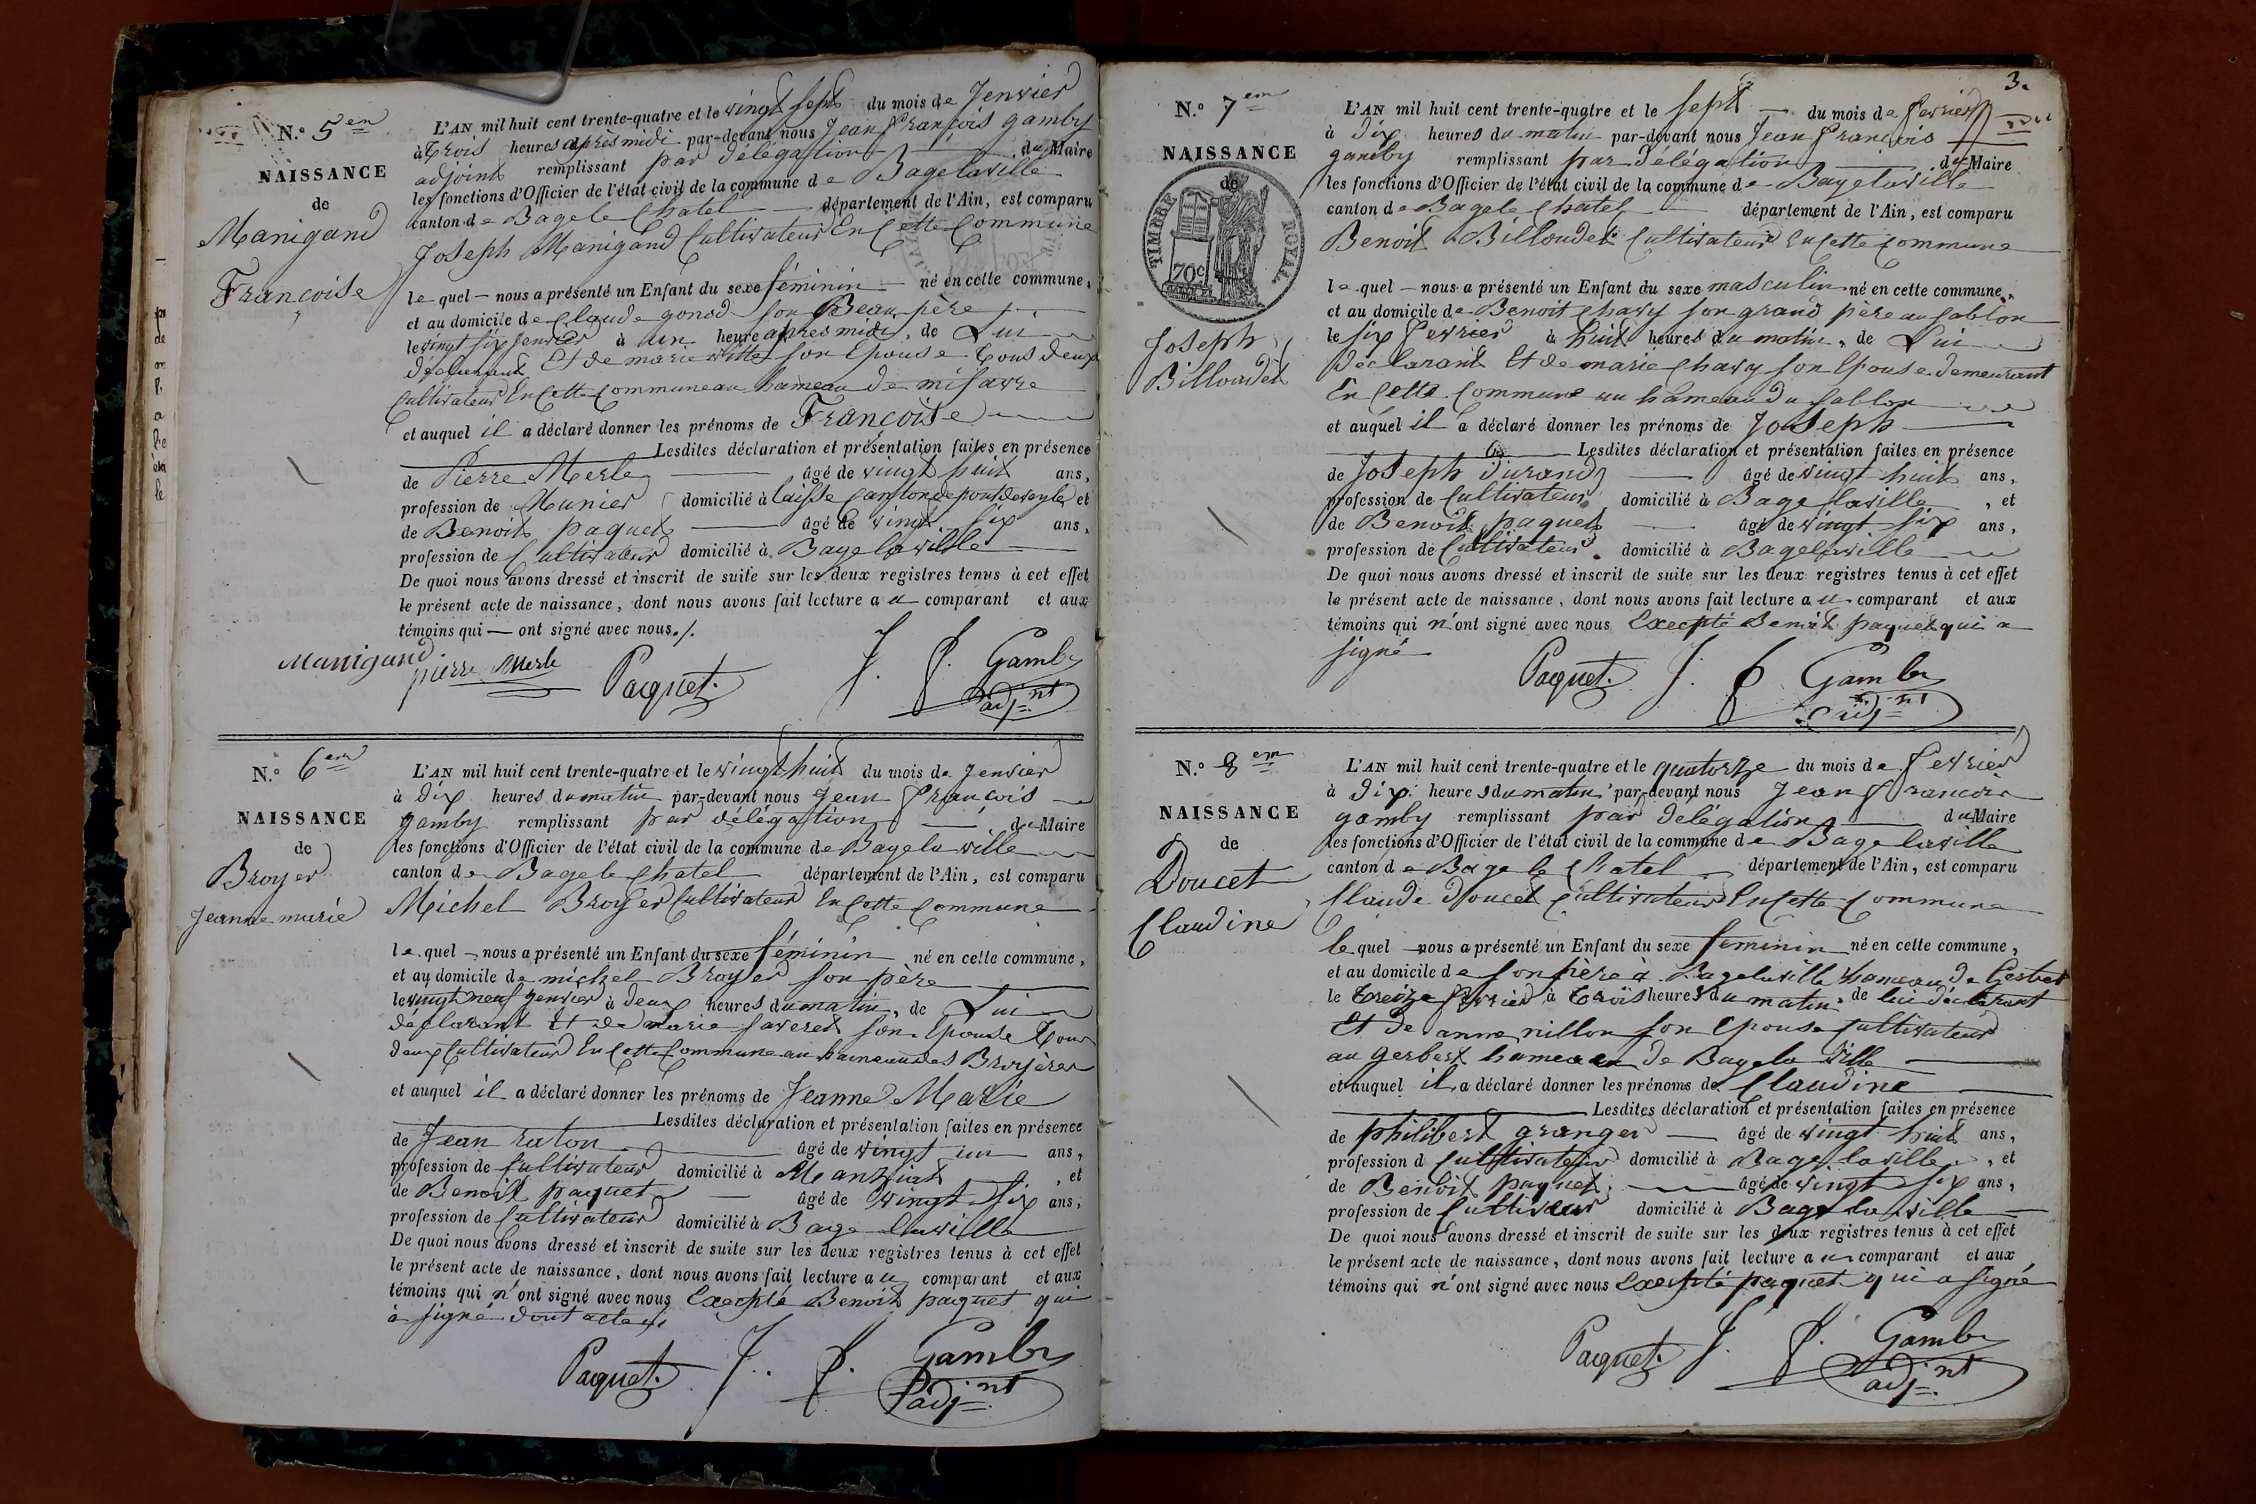 N.° 5em
NAISSANCE
de
Manigand
Francoise
L'AN mil huit cent trente-quatre et le vingt sept du mois de Jenvier
à trois heures après midi par-devant nous Jean François gamby
adjoint remplissant par délégation du Maire
les fonctions d'Officier de l'état civil de la commune de Bagelaville
canton de Bagele Chatel département de l'Ain, est comparu
Joseph Manigand Cultivateur En Cette Commune
le quel nous a présenté un Enfant du sexe féminin né en cette commune,
et au domicile de Claude gonod son Beau père
le vingt six Jenvier à un heure après midi, de Lui
déclarant Et de marie son Epouse tous deux
Cultivateur En Cette Commune au hameau de misavre
et auquel il a déclaré donner les prénoms de Francoise
Lesdites déclaration et présentation faites en présence
de Pierre Merle âgé de vingt huit ans,
profession de Munier domicilié à laisse Canton de pont de veyle et
de Benoit paquet âgé de vingt six ans,
profession de Cultivateur domicilié à Bagelaville
De quoi nous avons dressé et inscrit de suite sur les deux registres tenus à cet effet
le présent acte de naissance, dont nous avons fait lecture au comparant et aux
témoins qui ont signé avec nous./.
Manigand
pierre Merle Paquet. J. f. Gamby
adj.nt
N.° 6em
NAISSANCE
de
Broyer
Jeanne marie
L'AN mil huit cent trente-quatre et le vingt huit du mois de Jenvier
à dix heures du matin par-devant nous Jean François
gamby remplissant par délégation du Maire
les fonctions d'Officier de l'état civil de la commune de Bagelaville
canton de Bagele Chatel département de l'Ain, est comparu
Michel Broyer Cultivateur En Cette Commune
le quel nous a présenté un Enfant du sexe féminin né en cette commune,
et au domicile de michel Broyer son père
le vingt neuf Jenvier à deux heures du matin, de Lui
déclarant Et de marie Saveret son Epouse tous
deux Cultivateur En Cette Commune au hameau des Broyères
et auquel il a déclaré donner les prénoms de Jeanne Marie
Lesdites déclaration et présentation faites en présence
de Jean raton âgé de vingt un ans,
profession de Cultivateur domicilié à Manziat, et
de Benoit paquet âgé de vingt six ans,
profession de Cultivateur domicilié à Bage laville
De quoi nous avons dressé et inscrit de suite sur les deux registres tenus à cet effet
le présent acte de naissance, dont nous avons fait lecture au comparant et aux
témoins qui n'ont signé avec nous Excepté Benoit paquet qui
à signé dont acte
Paquet. J. f. Gamby
adj.nt
3.
N.° 7em
NAISSANCE
de
TIMBRE ROYAL
70c
Joseph
Billoudet
L'AN mil huit cent trente-quatre et le sept du mois de fevrier
à dix heures du matin par-devant nous Jean François
gamby remplissant par délégation du Maire
les fonctions d'Officier de l'état civil de la commune de Bagelaville
canton de Bagele Chatel département de l'Ain, est comparu
Benoit Billoudet Cultivateur En Cette Commune
le quel nous a présenté un Enfant du sexe masculin né en cette commune,
et au domicile de Benoit Chavy son grand père au sablon
le six fevrier à huit heures du matin, de Lui
déclarant Et de marie Chavy son Epouse demeurant
En Cette Commune au hameau du sablon
et auquel il a déclaré donner les prénoms de Joseph
Lesdites déclaration et présentation faites en présence
de Joseph Durand âgé de vingt huit ans,
profession de Cultivateur domicilié à Bage laville, et
de Benoit paquet âgé de vingt six ans,
profession de Cultivateur domicilié à Bagelaville
De quoi nous avons dressé et inscrit de suite sur les deux registres tenus à cet effet
le présent acte de naissance, dont nous avons fait lecture au comparant et aux
témoins qui n'ont signé avec nous Excepté Benoit paquet qui a
signé
Paquet. J. f. Gamby
adj.nt
N.° 8em
NAISSANCE
de
Doucet
Claudine
L'AN mil huit cent trente-quatre et le quatorze du mois de fevrier
à dix heures du matin par-devant nous Jean François
gamby remplissant par délégation du Maire
les fonctions d'Officier de l'état civil de la commune de Bage laville
canton de Bage le Chatel département de l'Ain, est comparu
Claude doucet Cultivateur En Cette Commune
le quel nous a présenté un Enfant du sexe feminin né en cette commune,
et au domicile de son père à Bagelaville hameau de Gerbet
le treize fevrier à trois heures du matin, de lui déclarant
Et de anne nillon son Epouse Cultivateur
au gerbet hameau de Bage la ville
et auquel il a déclaré donner les prénoms de Claudine
Lesdites déclaration et présentation faites en présence
de philibert granger âgé de vingt huit ans,
profession d Cultivateur domicilié à Bage laville, et
de Benoit paquet âgé de vingt six ans,
profession de Cultiveur domicilié à Bage la ville
De quoi nous avons dressé et inscrit de suite sur les deux registres tenus à cet effet
le présent acte de naissance, dont nous avons fait lecture au comparant et aux
témoins qui n'ont signé avec nous Excepté paquet qui a signé
Paquet. J. f. Gamby
adj.nt